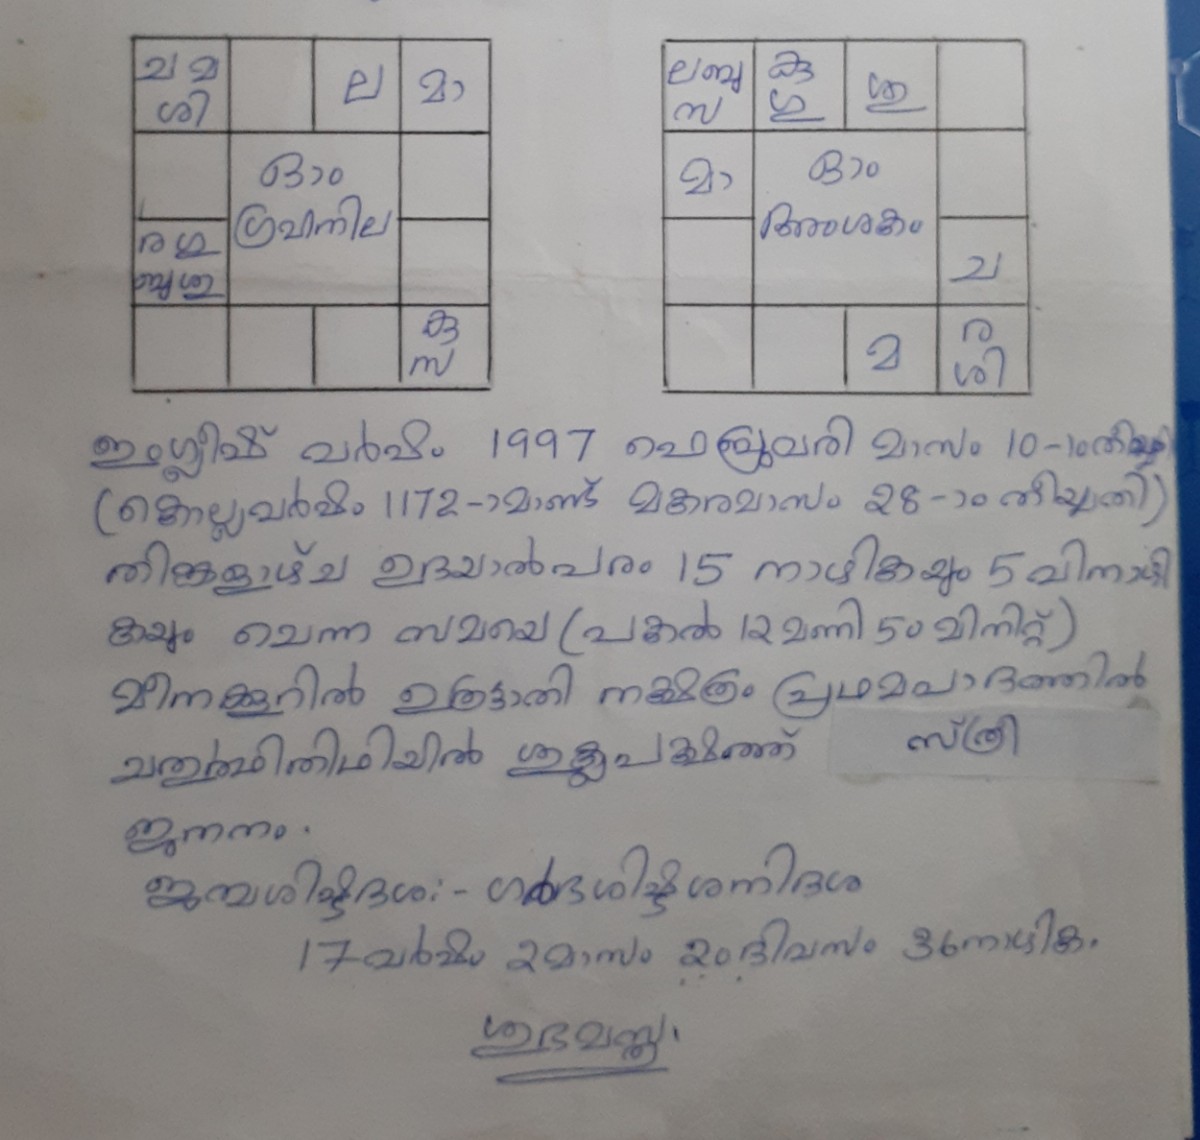 ച മ ല മാ
ശി
ഓം
ഗ്രഹനില
ര ഗു
ബു ശു
കു
സ
ല ബു കു ശു
സ ഗു
മാ ഓം
അംശകം
ച
മ ര
ശി
ഇംഗ്ലീഷ് വർഷം 1997 ഫെബ്രുവരി മാസം 10-ാംതിയ്യതി
(കൊല്ലവർഷം 1172-ാമാണ്ട് മകരമാസം 28-ാം തീയ്യതി)
തിങ്കളാഴ്ച ഉദയാൽപരം 15 നാഴികയും 5 വിനാഴി
കയും ചെന്ന സമയെ (പകൽ 12 മണി 50 മിനിറ്റ്)
മീനക്കൂറിൽ ഉത്രട്ടാതി നക്ഷത്രം പ്രഥമപാദത്തിൽ
ചതുർത്ഥിതിഥിയിൽ ശുക്ലപക്ഷത്ത് സ്ത്രീ
ജനനം.
ജന്മശിഷ്ടദശ:- ഗർഭശിഷ്ടശനിദശ
17 വർഷം 2 മാസം 20 ദിവസം 36 നാഴിക.
ശുഭമസ്തു.